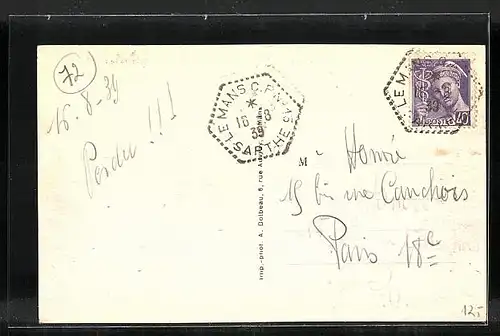 72
16-8-39
Perdu !!!
LE MANS C.P. N°
*
16 - 8
39
SARTHE
LE MANS
39
40
Imp.-phot. A. Dolbeau, 6, rue Mans
M Honié
15 bis rue Cauchois
Paris 18e
12,-